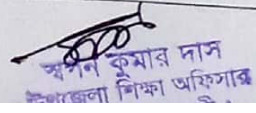 স্বপন কুমার দাস
উপজেলা শিক্ষা অফিসার